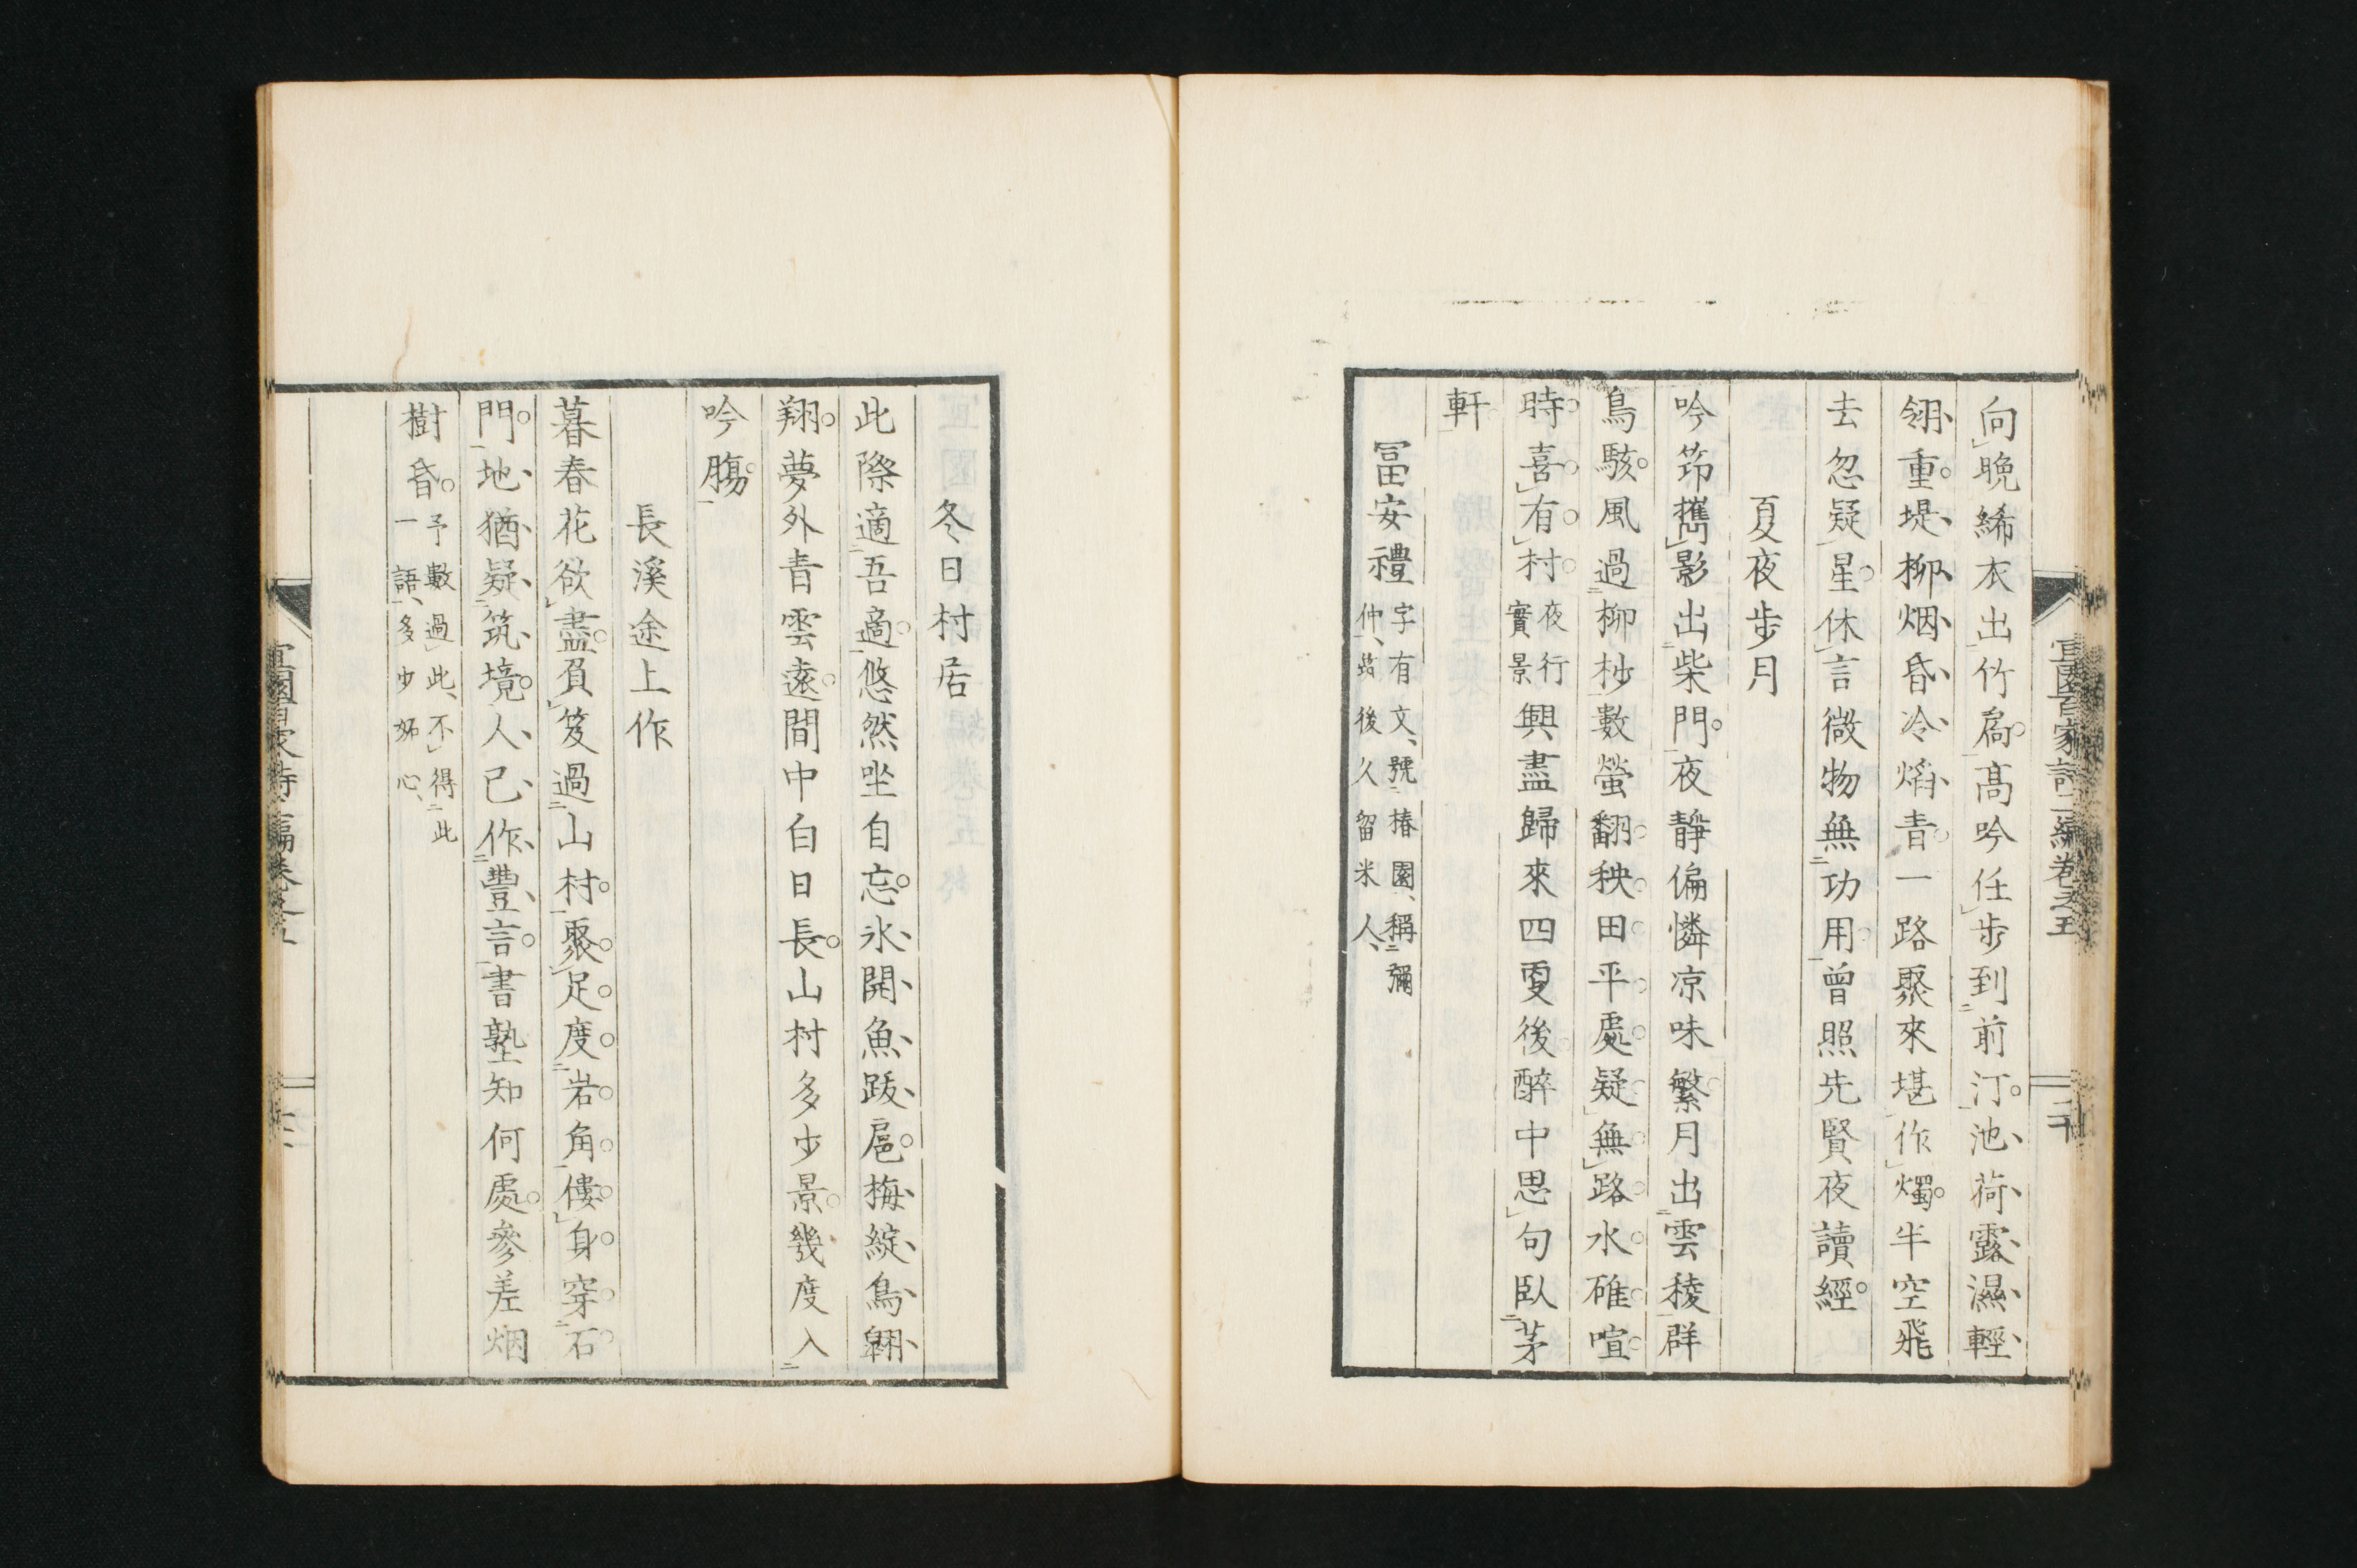 宜園百家詩二編卷之五
二十
向晚絺衣出竹扃高吟任步到前汀池荷露濕輕
翎重堤柳烟昏冷熖青一路聚來堪作燭半空飛
去忽疑星休言微物無功用曾照先賢夜讀經
夏夜步月
吟筇攜影出柴門夜靜偏憐凉味繁月出雲稜群
鳥駭風過柳杪數螢翻秧田平處疑無路水碓喧
時喜有村夜行實景興盡歸來四更後醉中思句臥茅
軒
冨安禮字有文、號椿園、稱彌
仲、筑後久留米人、
冬日村居
此際適吾適悠然坐自忘氷開魚跋扈梅綻鳥翱
翔夢外青雲遠間中白日長山村多少景幾度入
吟膓
長溪途上作
暮春花欲盡負笈過山村聚足度岩角僂身穿石
門地猶疑筑境人已作豐言書塾知何處參差烟
樹昏予數過此、不得此
一語、多少㛮心、